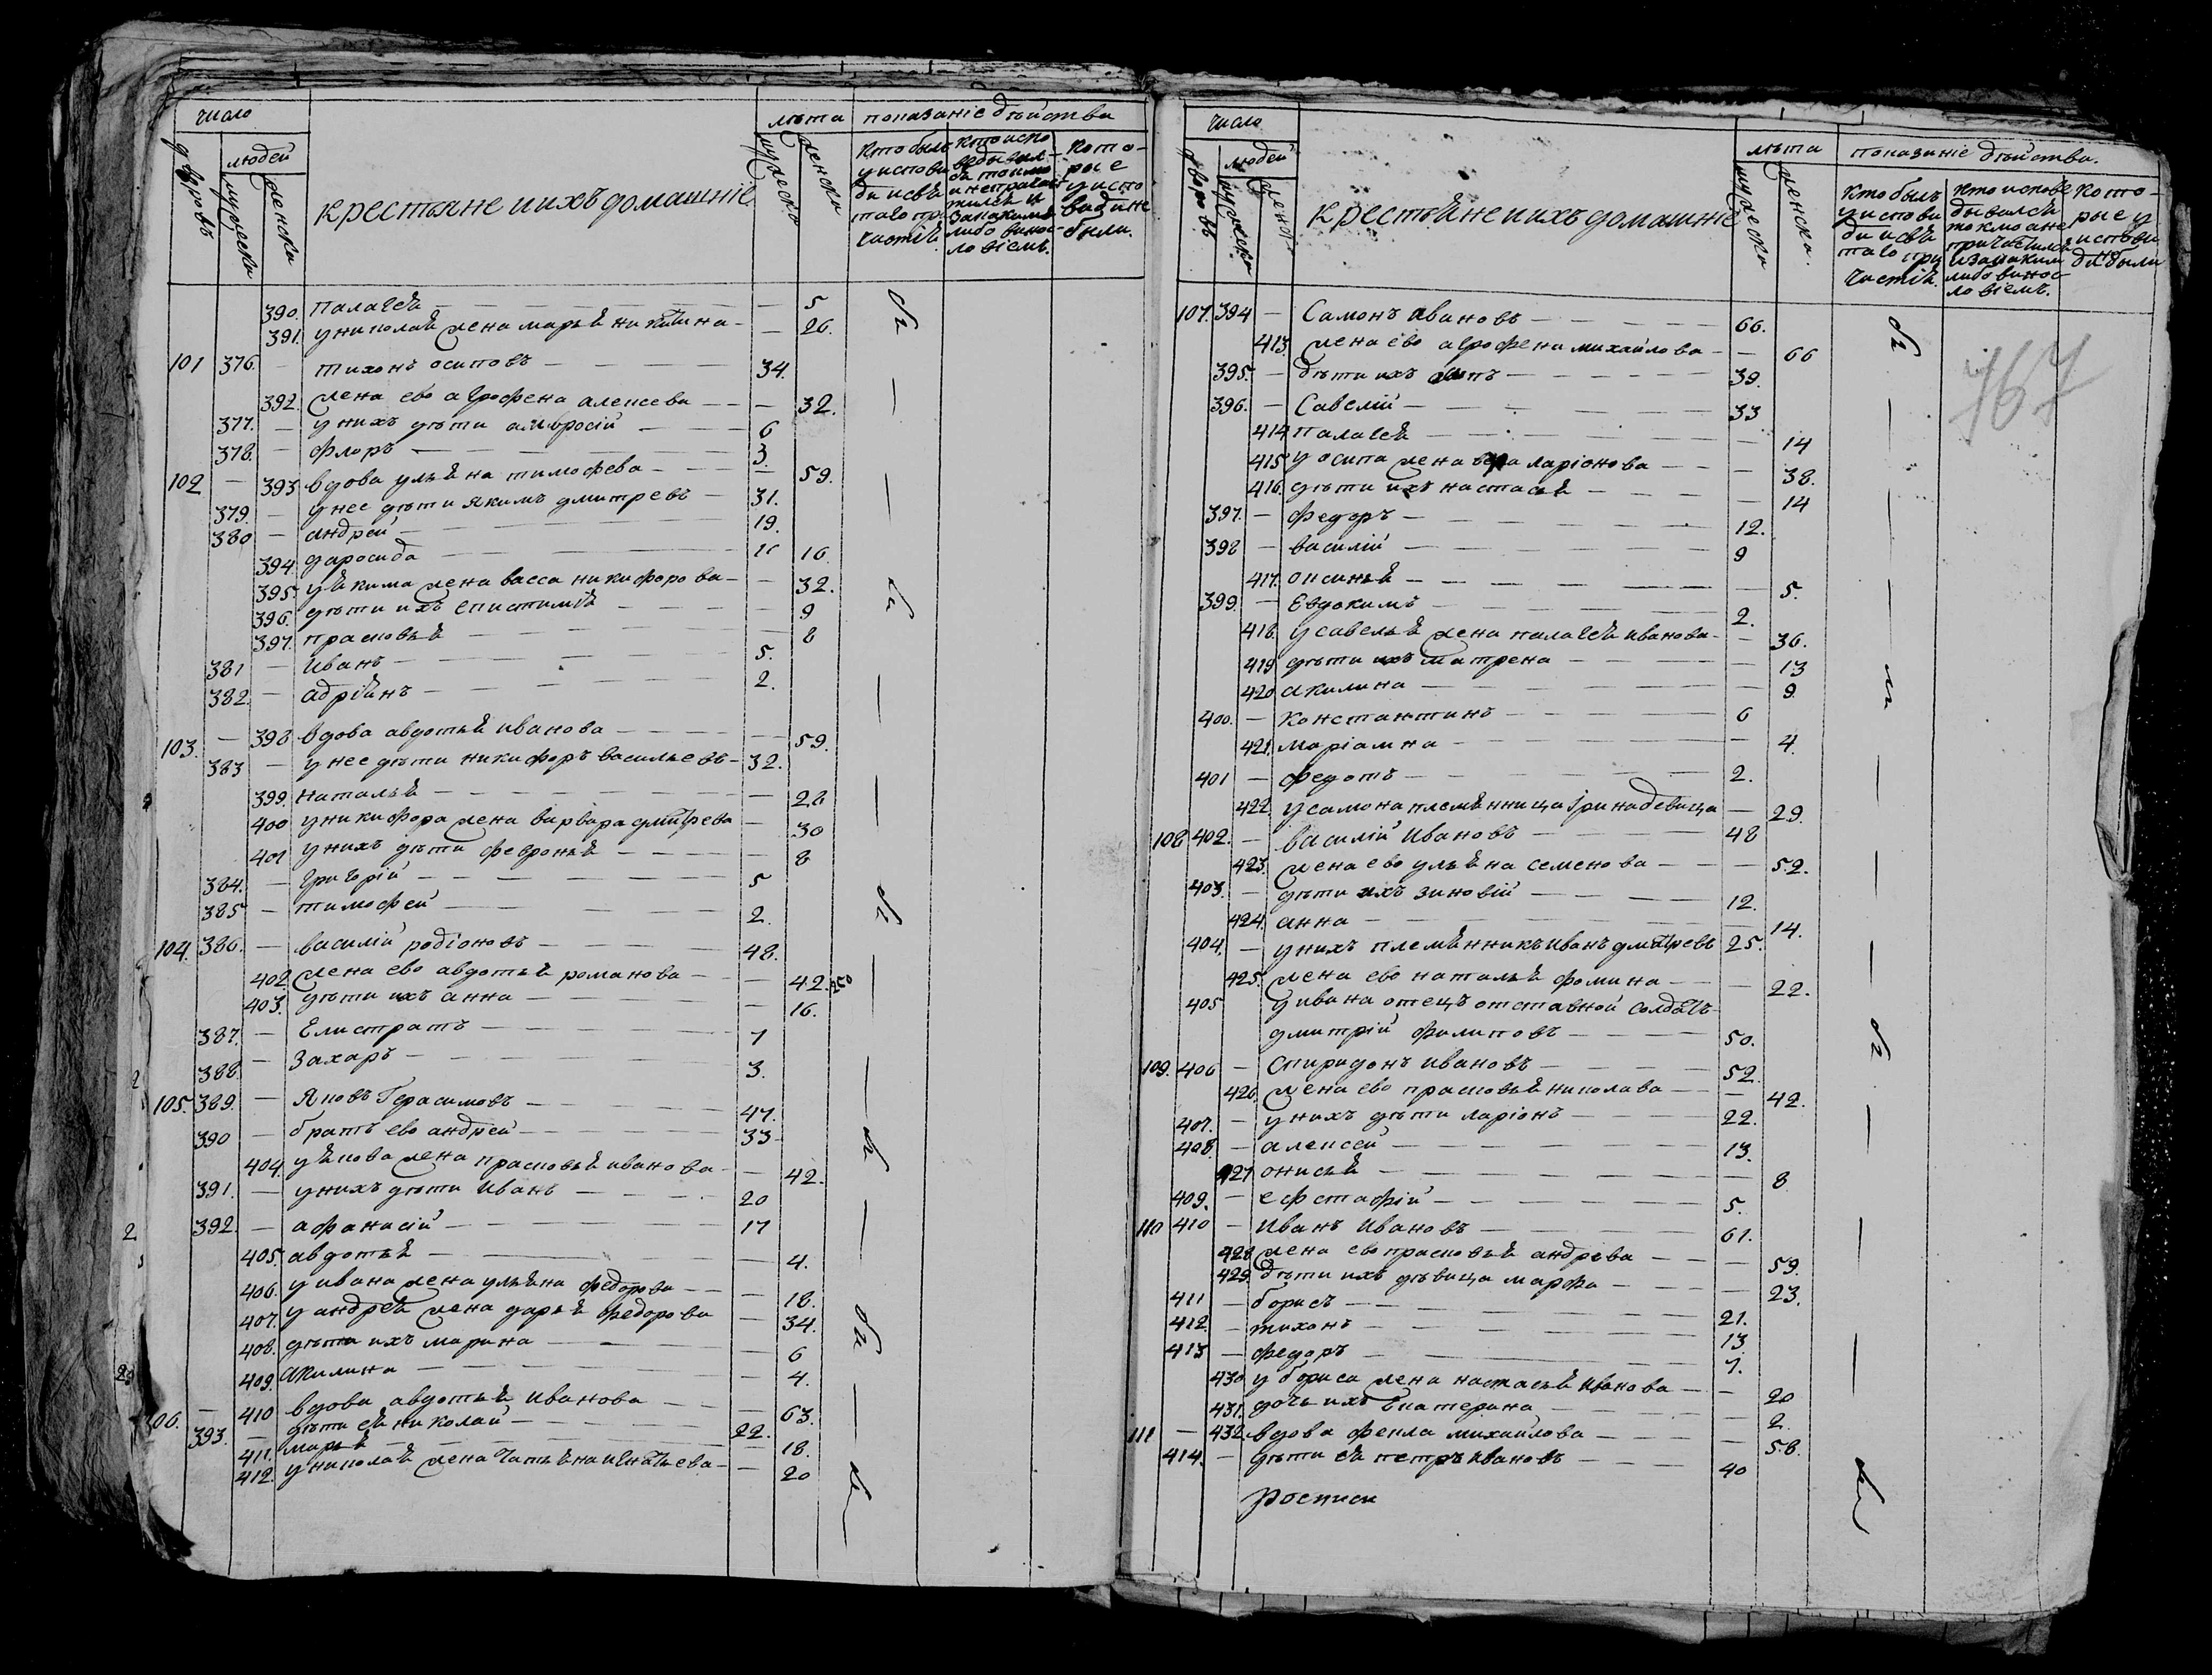 число
лѣта показанiе дѣйства
дворовъ
людей
мужеска
женска
крестьяне ииxъ домашнiе
мужеска
женска
390. палагея — 5
391. униколая жена марья никитина — 26.
101 376. — тихонъ осиповъ — 34.
392. жена ево агрофена алексева — 32.
377. — унихъ дѣти амвросiй — 6
378. — флоръ — 3.
102 — 393 вдова ульяна тимофева — 59.
379. — унее дѣти якимъ дмитревъ — 31.
380 — андрей — 19.
394. — 16
395. уякима жена васса никифорова — 32.
396. дѣти ихъ епистимiя — 9
397. прасковья — 8
381 — Иванъ — 5.
382. — адрiянъ — 2.
103. — 398 вдова авдотья иванова — 59.
383 — унее дѣти никифоръ васильевъ — 32.
399. наталья — 28
400 уникифора жена варвара дмитрева — 30
401 унихъ дѣти февронья — 8
384. — григорiй — 5
385 — тимофей — 2.
104. 386. — василiй родiоновъ — 48.
402. жена ево авдотья романова — 42.
403. дѣти ихъ анна — 16.
387. — Елистратъ — 7
388. — Захаръ — 3.
105. 389. — Яковъ Герасимовъ — 47.
390 — братъ ево андрей — 33
404. уякова жена прасковья иванова — 42.
391. — унихъ дѣти Иванъ — 20
392. — афанасiй — 17
405. авдотья — 4.
406. уивана жена ульяна федорова — 18.
407. уандрея жена дарья федорова — 34.
408. дѣти ихъ марина — 6
409. акилина — 4.
106. — 410 вдова авдотья Иванова — 63.
393. — дѣти ея николай — 22.
411. марья — 18.
412. униколая жена татьяна игнатьева — 20
число
лѣта показанiе дѣйства.
дворовъ
людей
мужеска
женска
крестьяне ииxъ домашнiе
мужеска
женска.
767
107. 394 — Самонъ Ивановъ — 66.
413. жена ево агрофена михайлова — 66
395. — дѣти ихъ — 39.
396. — Савелiй — 33
414 палагея — 14
415 уосипа жена вера ларiонова — 38.
416. дѣти ихъ настасья — 14
397. — федоръ — 12.
398 — василiй — 9
417. оксинья — 5.
399. — Евдокимъ — 2.
418. усавелья жена палагея иванова — 36.
419 дѣти ихъ матрена — 13
420 акилина — 9
400. — константинъ — 6
421. марiамна — 4.
401 — федотъ — 2.
422. усамона племянница Iрина девица — 29.
108 402. — василiй Ивановъ — 48
423. жена ево ульяна семенова — 52.
403. — дѣти ихъ зиновiй — 12.
424. анна — 14.
404. — унихъ племянникъ иванъ дмитревъ 25.
425. жена ево наталья фомина — 22.
405 уивана отецъ отставной солдатъ
дмитрiй филиповъ — 50.
109. 406 — Спиридонъ Ивановъ — 52.
426. жена ево прасковья николава — 42.
407. — унихъ дѣти ларiонъ — 22.
408. — алексей — 13.
427 онисья — 8
409. — ефстафiй — 5.
110 410 — Иванъ Ивановъ — 61.
428. жена ево прасковья андрѣва — 59.
429. дѣти ихъ дѣвица марфа — 23.
411 — борисъ — 21.
412. — тихонъ — 13
413 — федоръ — 7.
430 убориса жена настасья Иванова — 20
431. дочь ихъ Екатерина — 2.
111 — 432. вдова фекла михайлова — 58.
414. — дѣти ея петръ ивановъ — 40
росписи